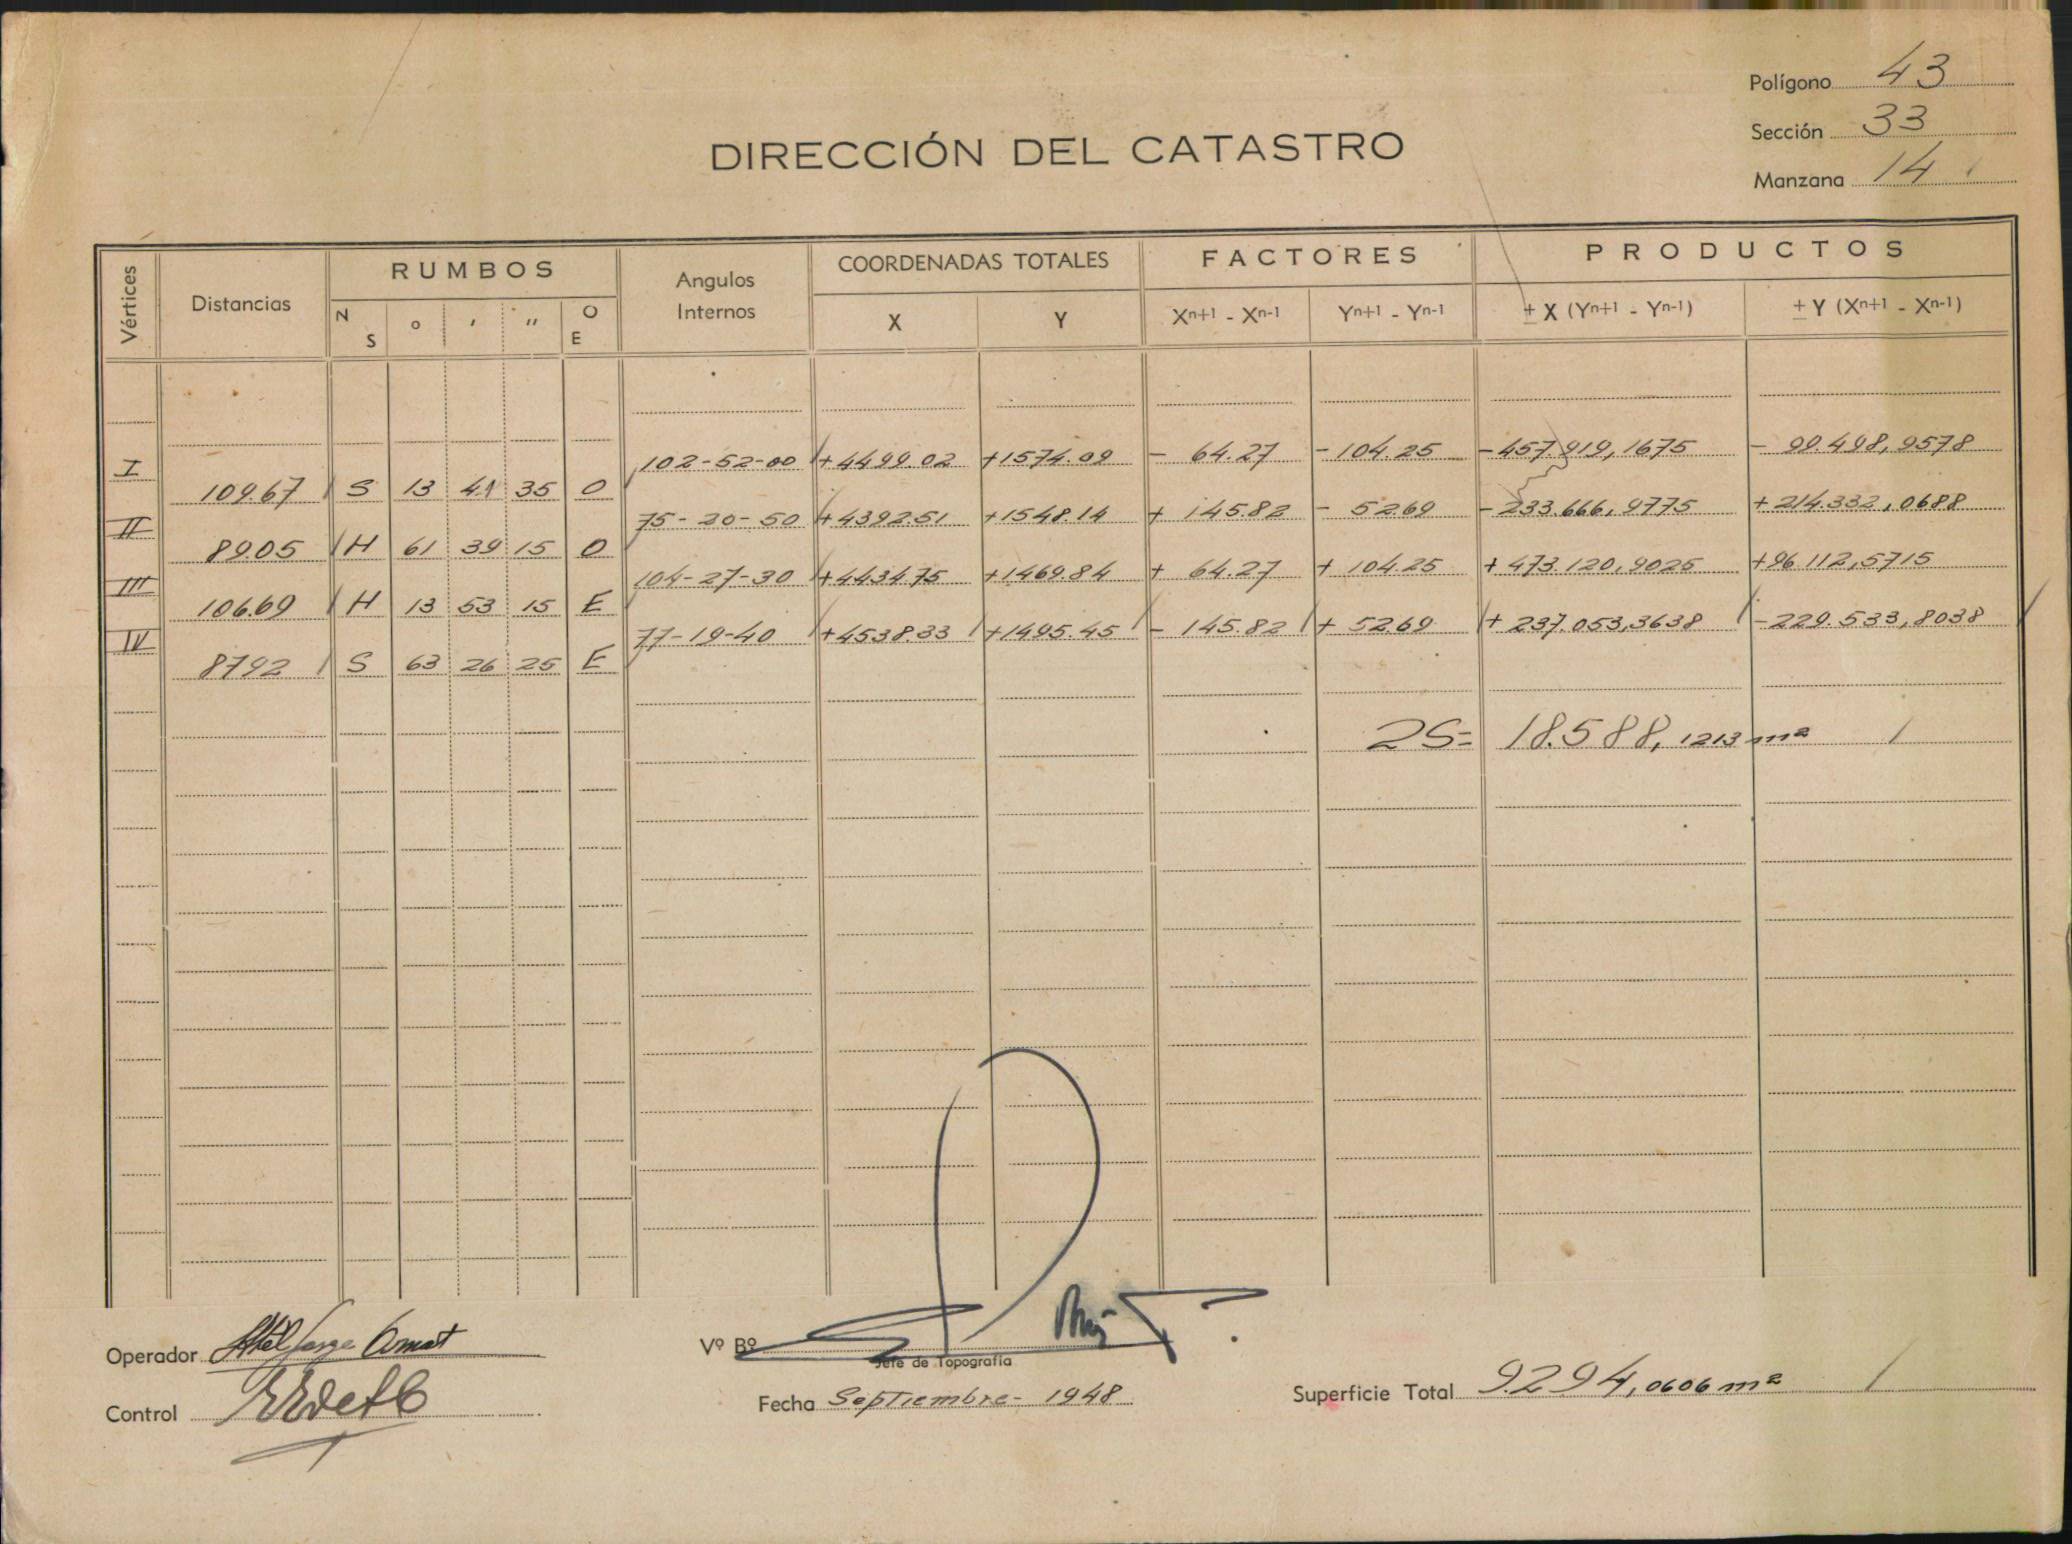 Polígono 43
Sección 33
Manzana 14
DIRECCIÓN DEL CATASTRO
Vértices Distancias RUMBOS N S ° ' " O E Angulos Internos COORDENADAS TOTALES X Y FACTORES Xn+1 - Xn-1 Yn+1 - Yn-1 PRODUCTOS ± X (Yn+1 - Yn-1) ± Y (Xn+1 - Xn-1)
I 102-52-00 +4499.02 +1574.09 - 64.27 - 104.25 -457.919,1675 - 99.498,9578
109.67 S 13 41 35 O
II 75-20-50 +4392.51 +1548.14 + 145.82 - 52.69 -233.666,9775 +214.332,0688
89.05 N 61 39 15 O
III 104-27-30 +4434.75 +1469.84 + 64.27 + 104.25 +473.120,9025 +96.112,5715
106.69 N 13 53 15 E
IV 77-19-40 +4538.33 +1495.45 - 145.82 + 52.69 +237.053,3638 -229.533,8038
87.92 S 63 26 25 E
2S= 18.588,1213 m²
Operador
Vº Bº
Jefe de Topografía
Control
Fecha Septiembre - 1948
Superficie Total 9.294,0606 m²